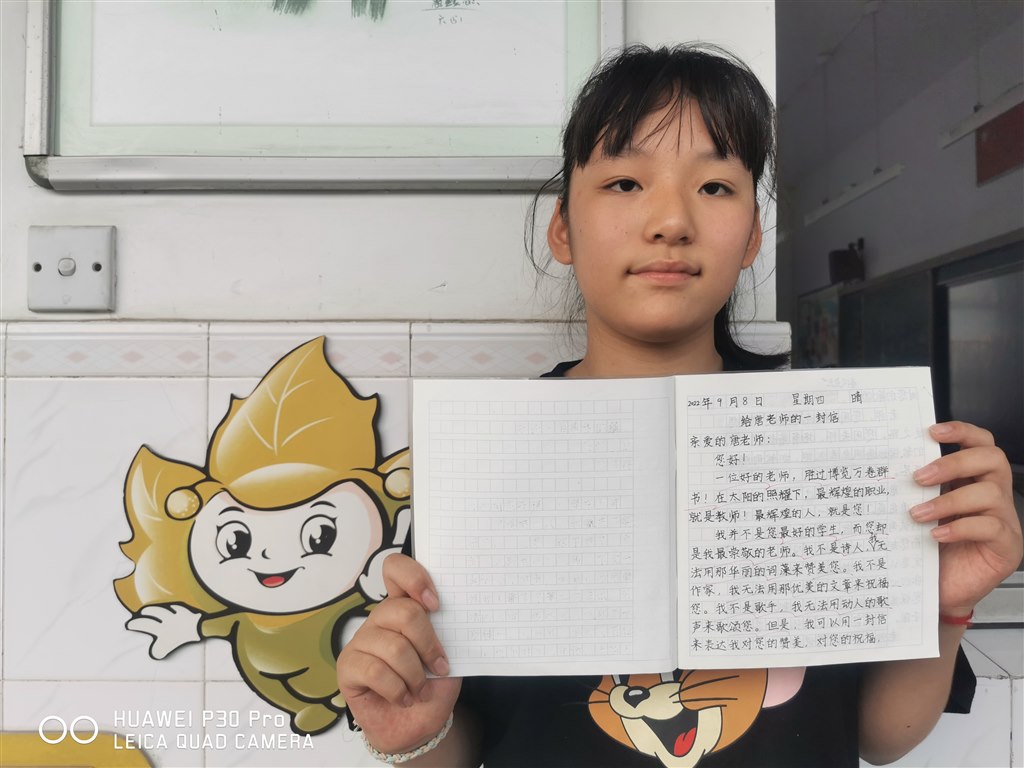 2022年9月8日 星期四 晴
给唐老师的一封信
亲爱的唐老师：
您好！
一位好的老师，胜过博览万卷群
书！在太阳的照耀下，最辉煌的职业，
就是教师！最辉煌的人，就是您！
我并不是您最好的学生，而您却
是我最崇敬的老师。我不是诗人，我无
法用那华丽的词藻来赞美您。我不是
作家，我无法用那优美的文章来祝福
您。我不是歌手，我无法用动人的歌
声来歌颂您。但是，我可以用一封信
来表达我对您的赞美，对您的祝福。
HUAWEI P30 Pro
LEICA QUAD CAMERA